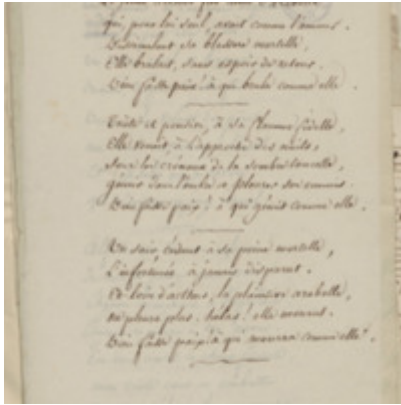 qui, pour lui seul, avait connu l'amour.
Dissimulant sa blessure mortelle,
Elle brulait, sans espoir de retour.
Dieu fasse paix! à qui brule comme elle.
Triste et pensive, à sa flamme fidelle,
Elle venait, à l'approche des nuits,
sous les créneaux de la sombre tourelle,
gémir dans l'ombre et pleurer ses ennuis.
Dieu fasse paix! à qui gémit comme elle.
Un soir, cédant à sa peine mortelle,
L'infortunée à jamais disparut.
Et loin d'arthur, la plaintive arabelle,
ne pleura plus. hélas! elle mourut.
Dieu fasse paix! à qui mourra comme elle.